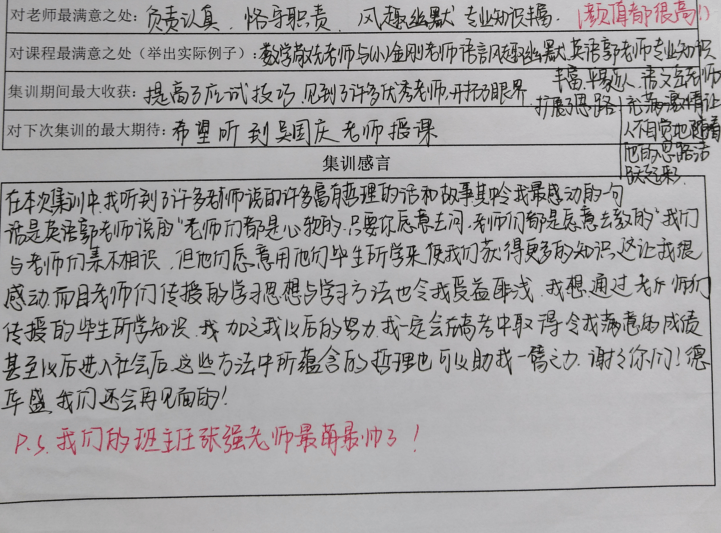 对老师最满意之处: 负责认真, 恪守职责, 风趣幽默 专业知识丰富. (颜值都很高!)
对课程最满意之处(举出实际例子): 数学 老师与(小)金刚老师语言风趣幽默,英语郭老师专业知识
丰富,平易近人,语文 老师
充满激情让
人不自觉地随着
他的思路活
跃起来.
集训期间最大收获: 提高了应试技巧, 见到了许多优秀老师,开拓了眼界
扩展了思路
对下次集训的最大期待: 希望听到吴国庆老师授课
集训感言
在本次集训中,我听到了许多老师说的许多富有哲理的话和故事其中令我最感动的一句
话是英语郭老师说的"老师们都是心软的.只要你愿意去问,老师们都是愿意去教的"我们
与老师们素不相识,但他们愿意用他们毕生所学来使我们获得更多的知识,这让我很
感动.而且老师们传授的学习思想与学习方法也令我受益匪浅.我想,通过老师们
传授的毕生所学知识,我加之我以后的努力,我一定会在高考中取得令我满意的成绩
甚至以后进入社会后,这些方法中所蕴含的哲理也可以助我一臂之力.谢谢你们!德
华盛,我们还会再见面的!
P.S.我们的班主任张强老师最萌最帅了!